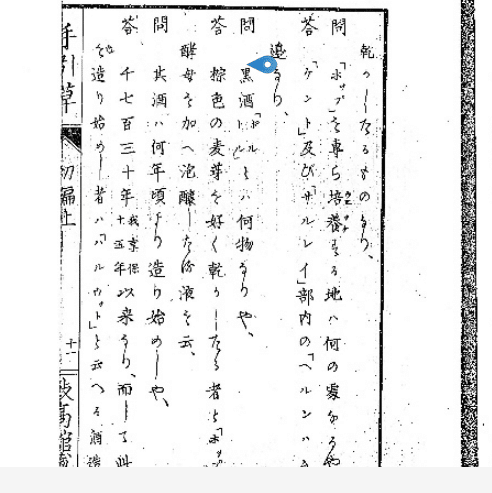 乾かしたるものなり、
問 「ホップ」を専ら培養する地ハ何の處なるや
答 「ケント」及び「サルレイ」部内の「ヘルンハ
邉なり、
問 黒酒「ポルトル」とハ何物なりや、
答 棕色の麦芽を好く乾かしたる者と「ホップ
酵母を加へ泡醸したる液を云、
問 其酒ハ何年頃より造り始めしや、
答 千七百三十年我享保十五年以来なり、而して此
を造り始めし者ハ「ハルウット」と云へる酒造
手引草
初編上
十一